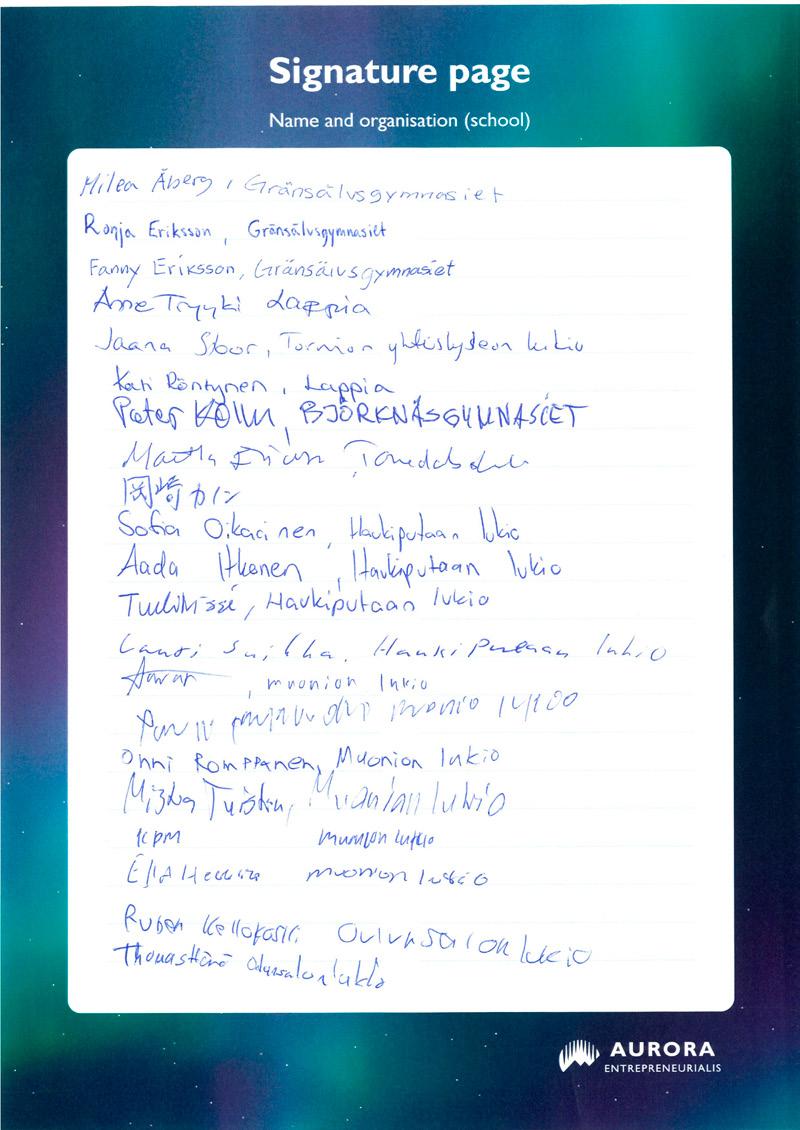 Signature page
Name and organisation (school)
Milea Åberg, Gränsälvsgymnasiet
Ronja Eriksson, Gränsälvsgymnasiet
Fanny Eriksson, Gränsälvsgymnasiet
Anne Tryyki Lappia
Jaana Stoor, Tornion yhteislyseon lukio
Kati Röntynen, Lappia
Peter BJÖRKNÄSGYMNASIET
岡崎カレン
Sofia Oikarinen, Haukiputaan lukio
Aada Itkonen, Haukiputaan lukio
Haukiputaan lukio
Lauri Haukiputaan lukio
, muonion lukio
Onni Romppanen, Muonion lukio
Muonion lukio
KPM muonion lukio
muonion lukio
Ruben Oulunsalon lukio
Oulunsalon lukio
AURORA
ENTREPRENEURIALIS